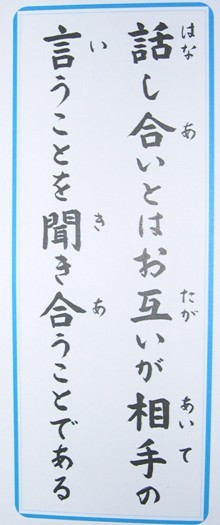 話し合いとはお互いが相手の
言うことを聞き合うことである